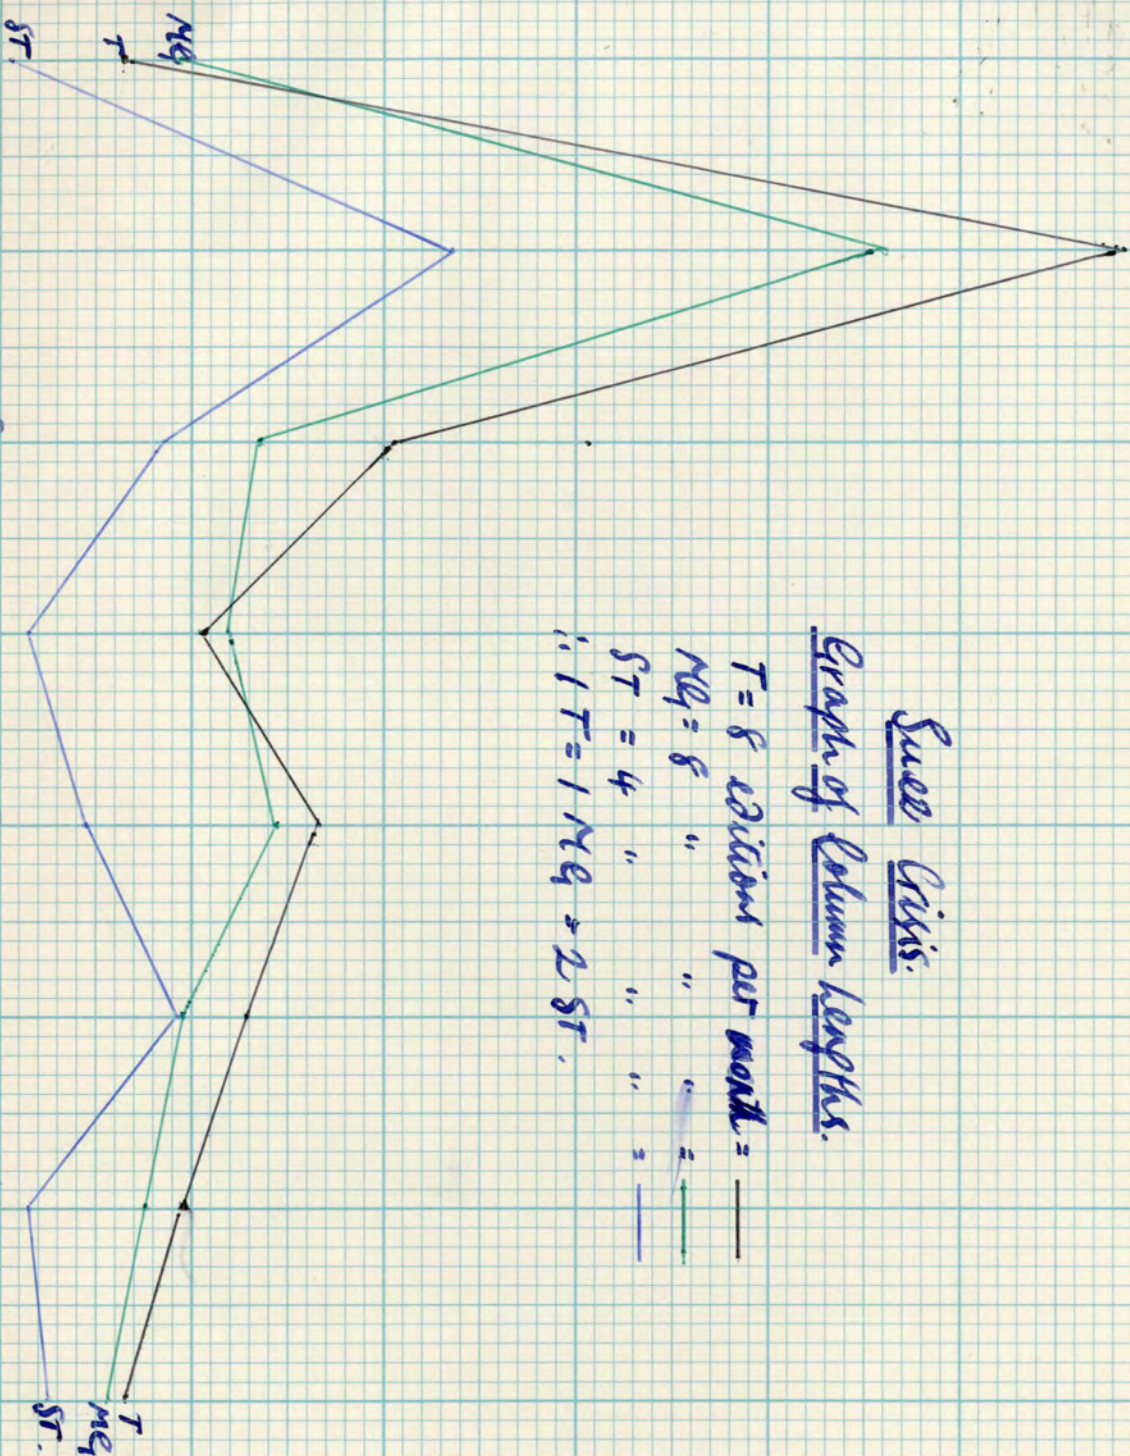 Suez Crisis.
Graph of Column Lengths.
T = 8 editions per month =
MG = 8 " " " =
ST = 4 " " " =
∴ 1 T = 1 MG = 2 ST.
MG
T
ST.
T
MG
ST.